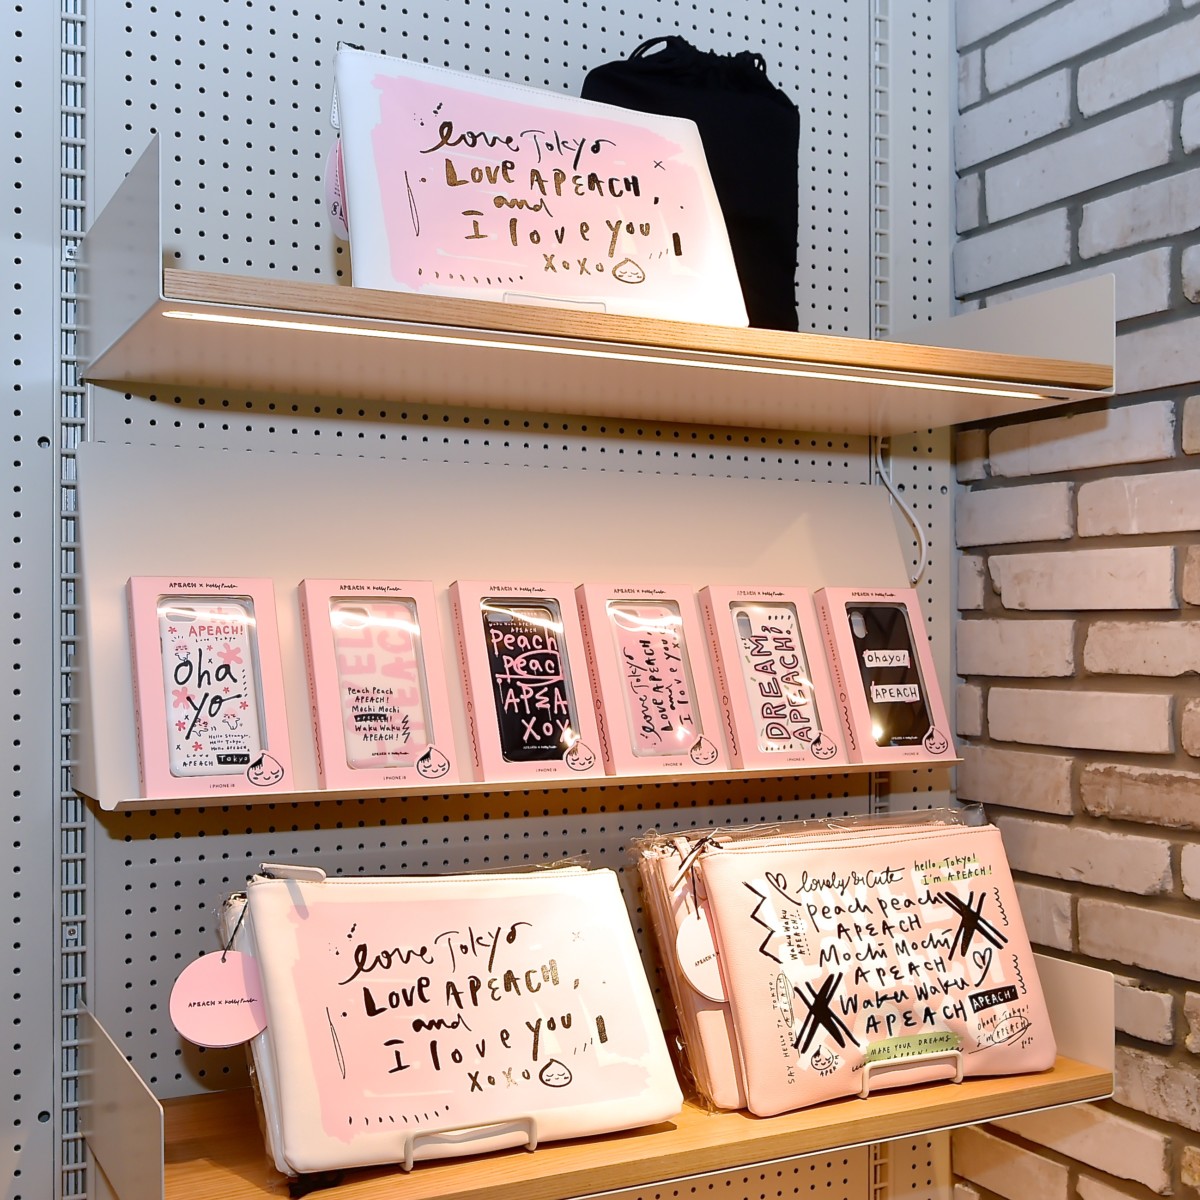 love Tokyo
Love APEACH,
and
I love you
xoxo
APEACH x
APEACH!
Love Tokyo
Oha
yo
Hello Stranger,
Hello Tokyo,
Hello APEACH
Love
APEACH Tokyo
IPHONE i8
APEACH x
Peach Peach
APEACH!
Mochi Mochi
APEACH!
Waku Waku
APEACH!
IPHONE i8
APEACH x
APEACH
Peach
Peac
APEA
XOX
IPHONE i8
APEACH x
love Tokyo
Love APEACH,
and
I love you
APEACH x
DREAM
APEACH!
APEACH x
ohayo!
APEACH
love Tokyo
Love APEACH,
and
I love you
xoxo
APEACH x
lovely & Cute
hello, Tokyo!
I'm APEACH!
Peach peach
APEACH
Mochi Mochi
APEACH
Waku Waku
APEACH
APEACH
Waku Waku
APEACH!
SAY HELLO TO TOKYO,
ohayo, Tokyo!
I'm APEACH!
xoxo
MAKE YOUR DREAMS
HAPPEN!
APEACH